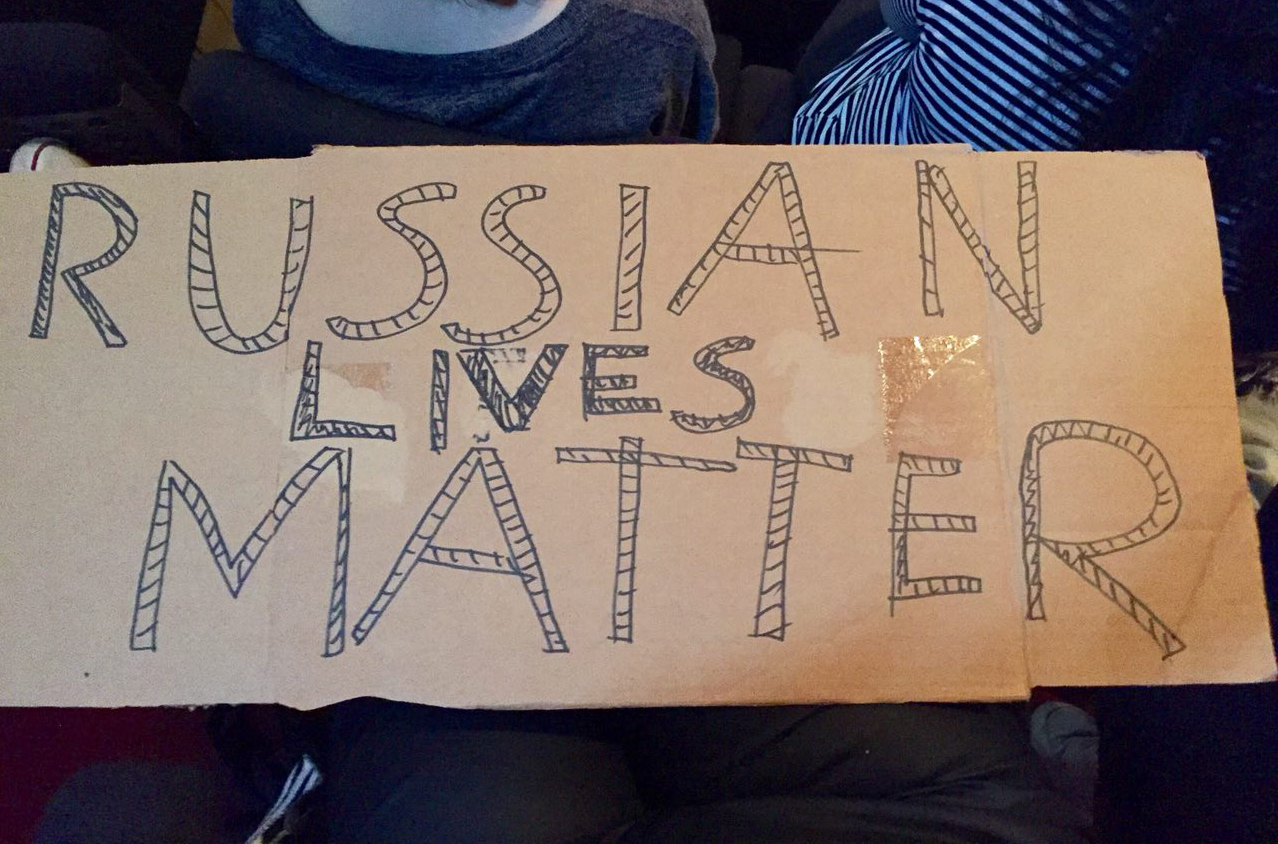 RUSSIAN
LIVES
MATTER